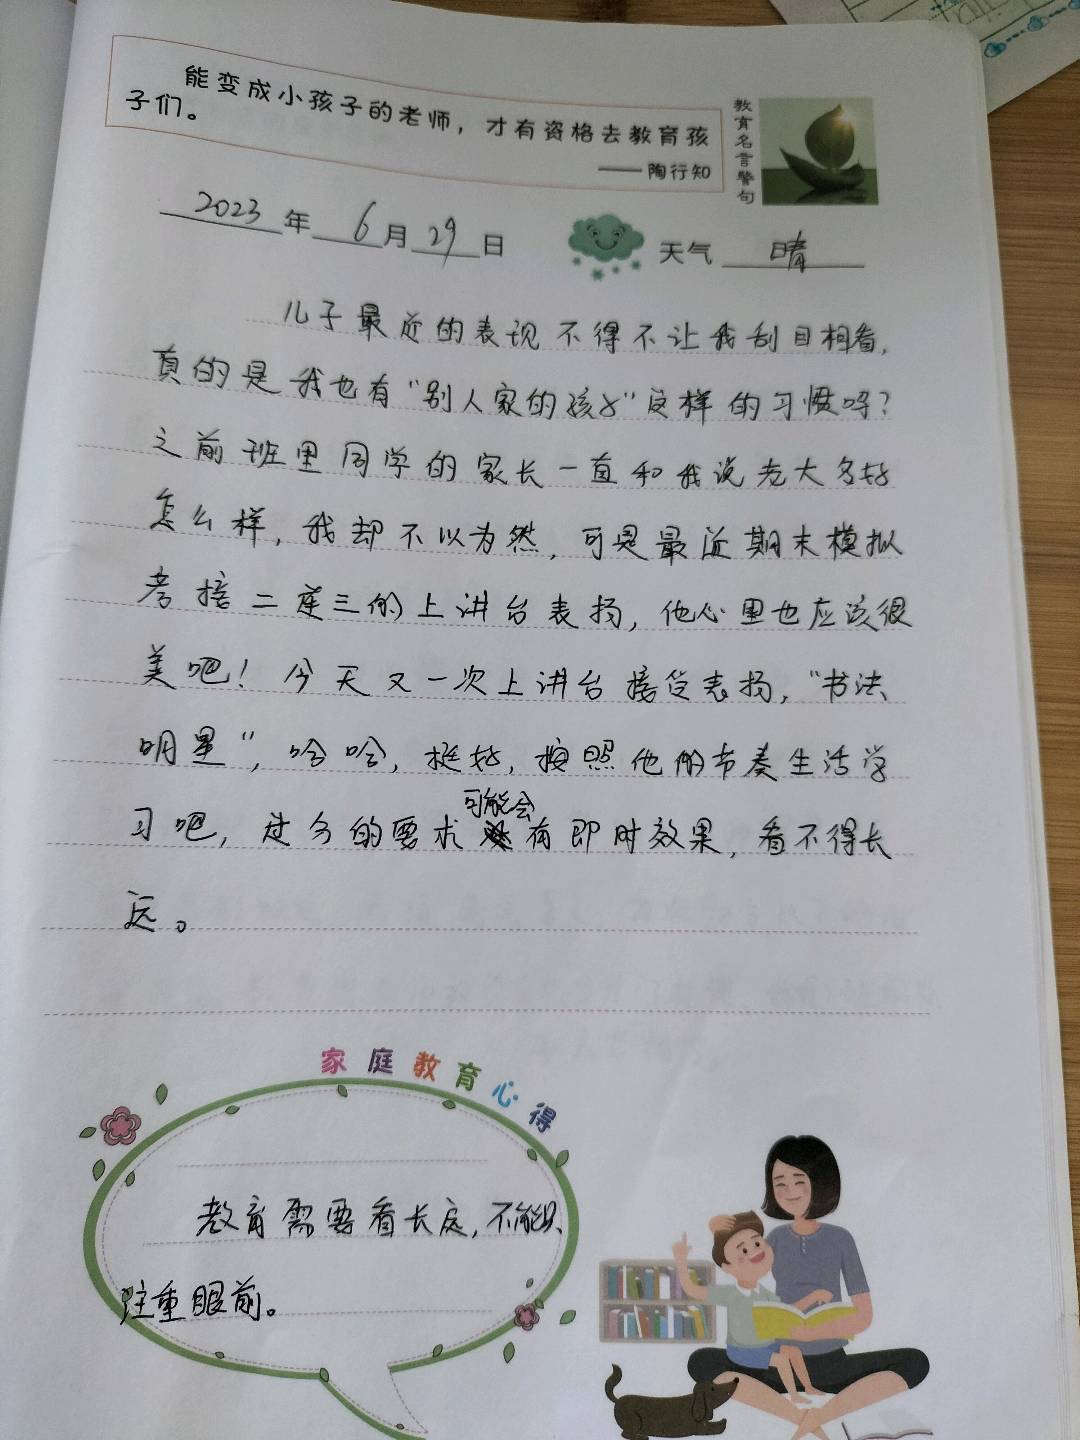 能变成小孩子的老师，才有资格去教育孩
子们。
——陶行知
教育名言警句
2023年6月29日 天气 晴
儿子最近的表现不得不让我刮目相看，
真的是我也有“别人家的孩子”这样的习惯吗？
之前班里同学的家长一直和我说老大多好
怎么样，我却不以为然，可是最近期末模拟
考接二连三的上讲台表扬，他心里也应该很
美吧！今天又一次上讲台接受表扬，“书法
明星”，哈哈，挺好，按照他的节奏生活学
可能会
习吧，过分的要求有即时效果，看不得长
远。
家庭教育心得
教育需要看长远，不能只
注重眼前。